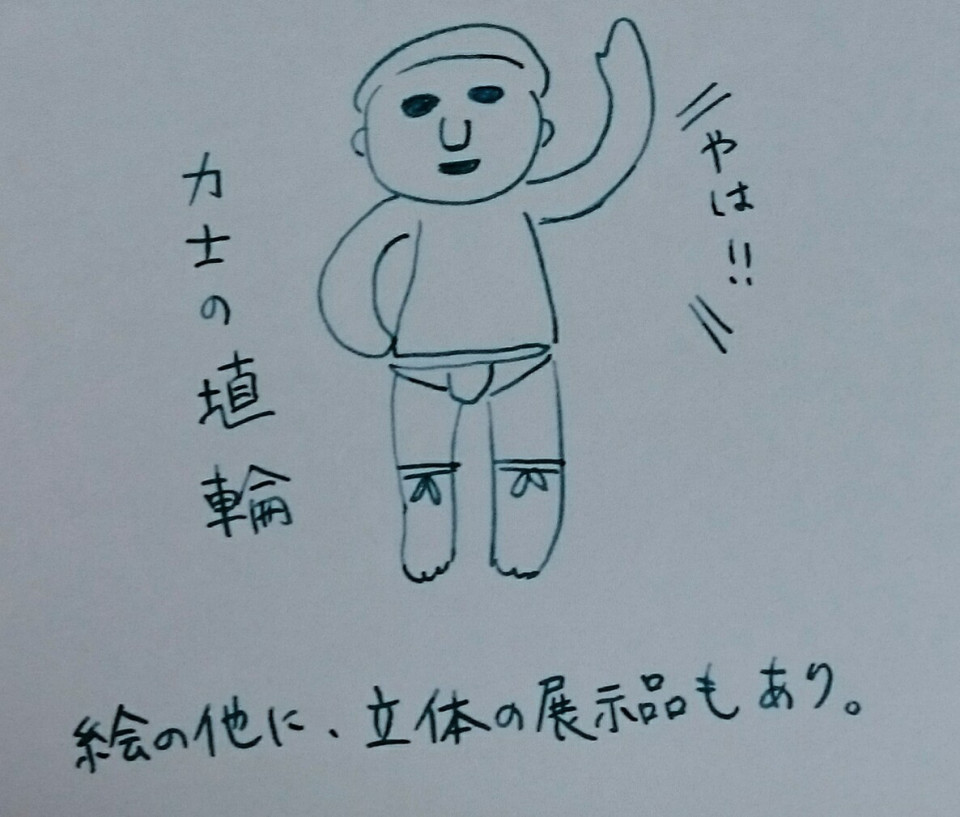 やは!!
力士の埴輪
絵の他に、立体の展示品もあり。